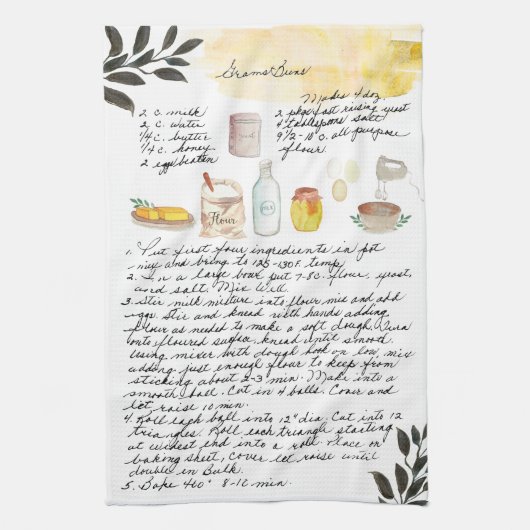 Grams Buns
Makes 4 doz.
2 c. milk
2 c. water
1/4 c. butter
1/4 c. honey
2 eggs beaten
2 pkg fast raising yeast
4 tablespoons salt
9 1/2-10 c. all purpose
flour.
Yeast
Flour
MILK
1. Put first four ingredients in pot
mix and bring to 125-130F. temp
2. In a large bowl put 7-8 c. flour, yeast,
and salt. Mix Well.
3. Stir milk mixture into flour mix and add
eggs. Stir and knead with hands adding
flour as needed to make a soft dough. Turn
onto floured surface, knead until smooth
Using mixer with dough hook on low, mix
adding just enough flour to keep from
sticking about 2-3 min. Make into a
smooth ball. Cut in 4 balls. Cover and
let raise 10 min.
4. Roll each ball into 12" dia. Cut into 12
triangles. Roll each triangle starting
at widest end into a roll Place on
baking sheet, cover let raise until
double in Bulk.
5. Bake 400° 8-10 min.